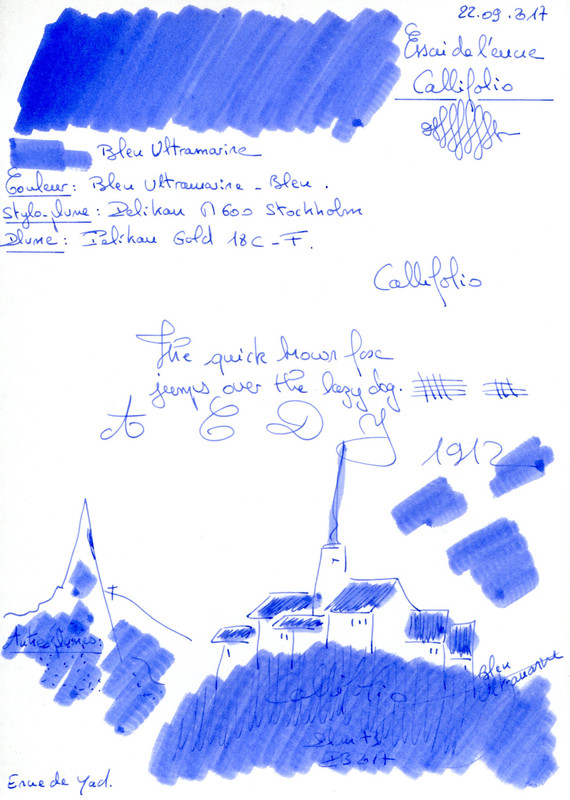 22.09.2017
Essai de l'encre
Callifolio
Bleu Ultramarine
Couleur: Bleu Ultramarine - Bleu.
Stylo-plume: Pelikan M600 Stockholm
Plume: Pelikan Gold 18C-F.
Callifolio
The quick brown fox
jumps over the lazy dog.
A E D Y
1912
Autres plumes:
Bleu
Ultramarine
Callifolio